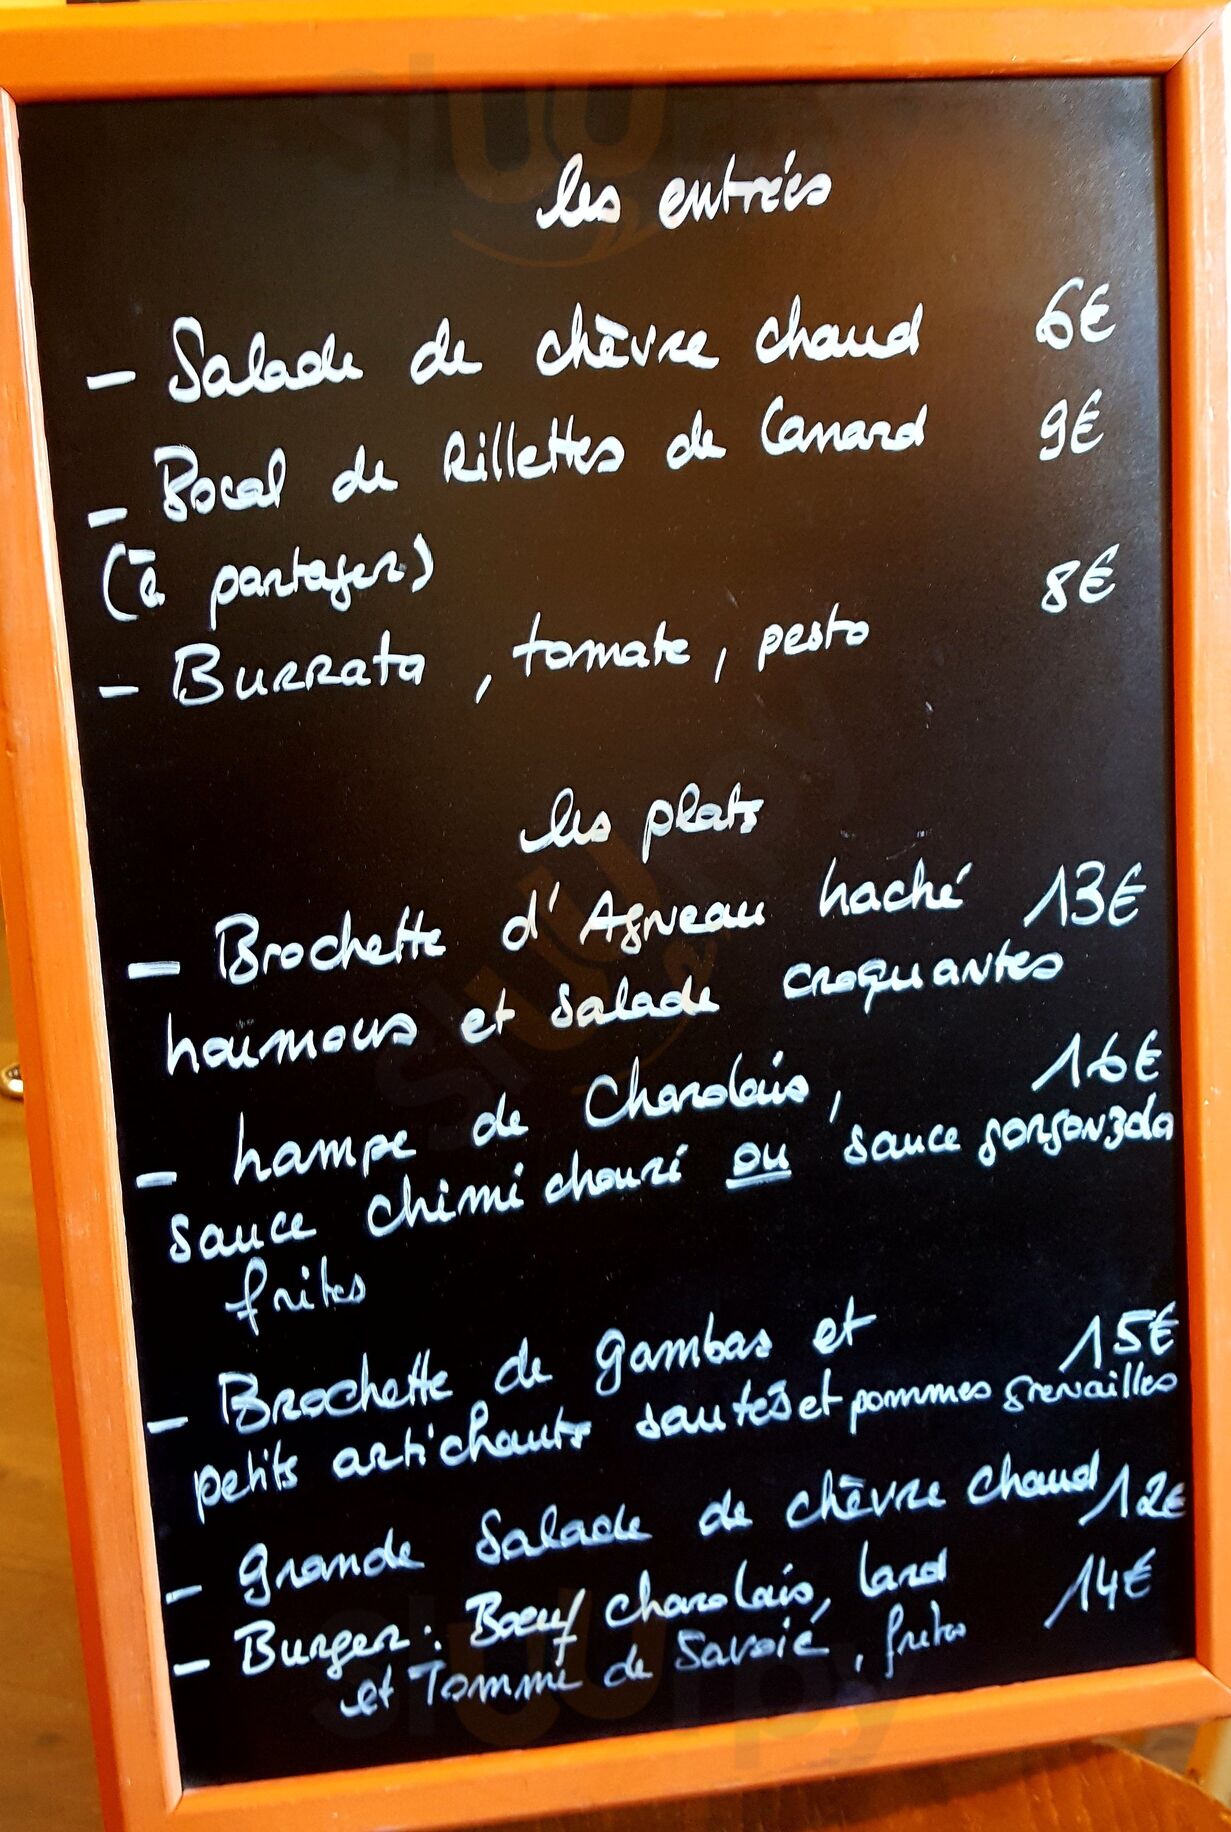 les entrées
- Salade de chèvre chaud 6€
- Bocal de Rillettes de Canard 9€
(à partager)
- Burrata, tomate, pesto 8€
les plats
- Brochette d'Agneau haché 13€
houmous et salade croquantes
- hampe de Charolais, 16€
sauce chimichouri ou sauce gorgonzola
frites
- Brochette de gambas et 15€
petits artichauts sautés et pommes grenailles
- Grande Salade de chèvre chaud 12€
- Burger: Boeuf charolais, lard 14€
et Tomme de Savoie, frites